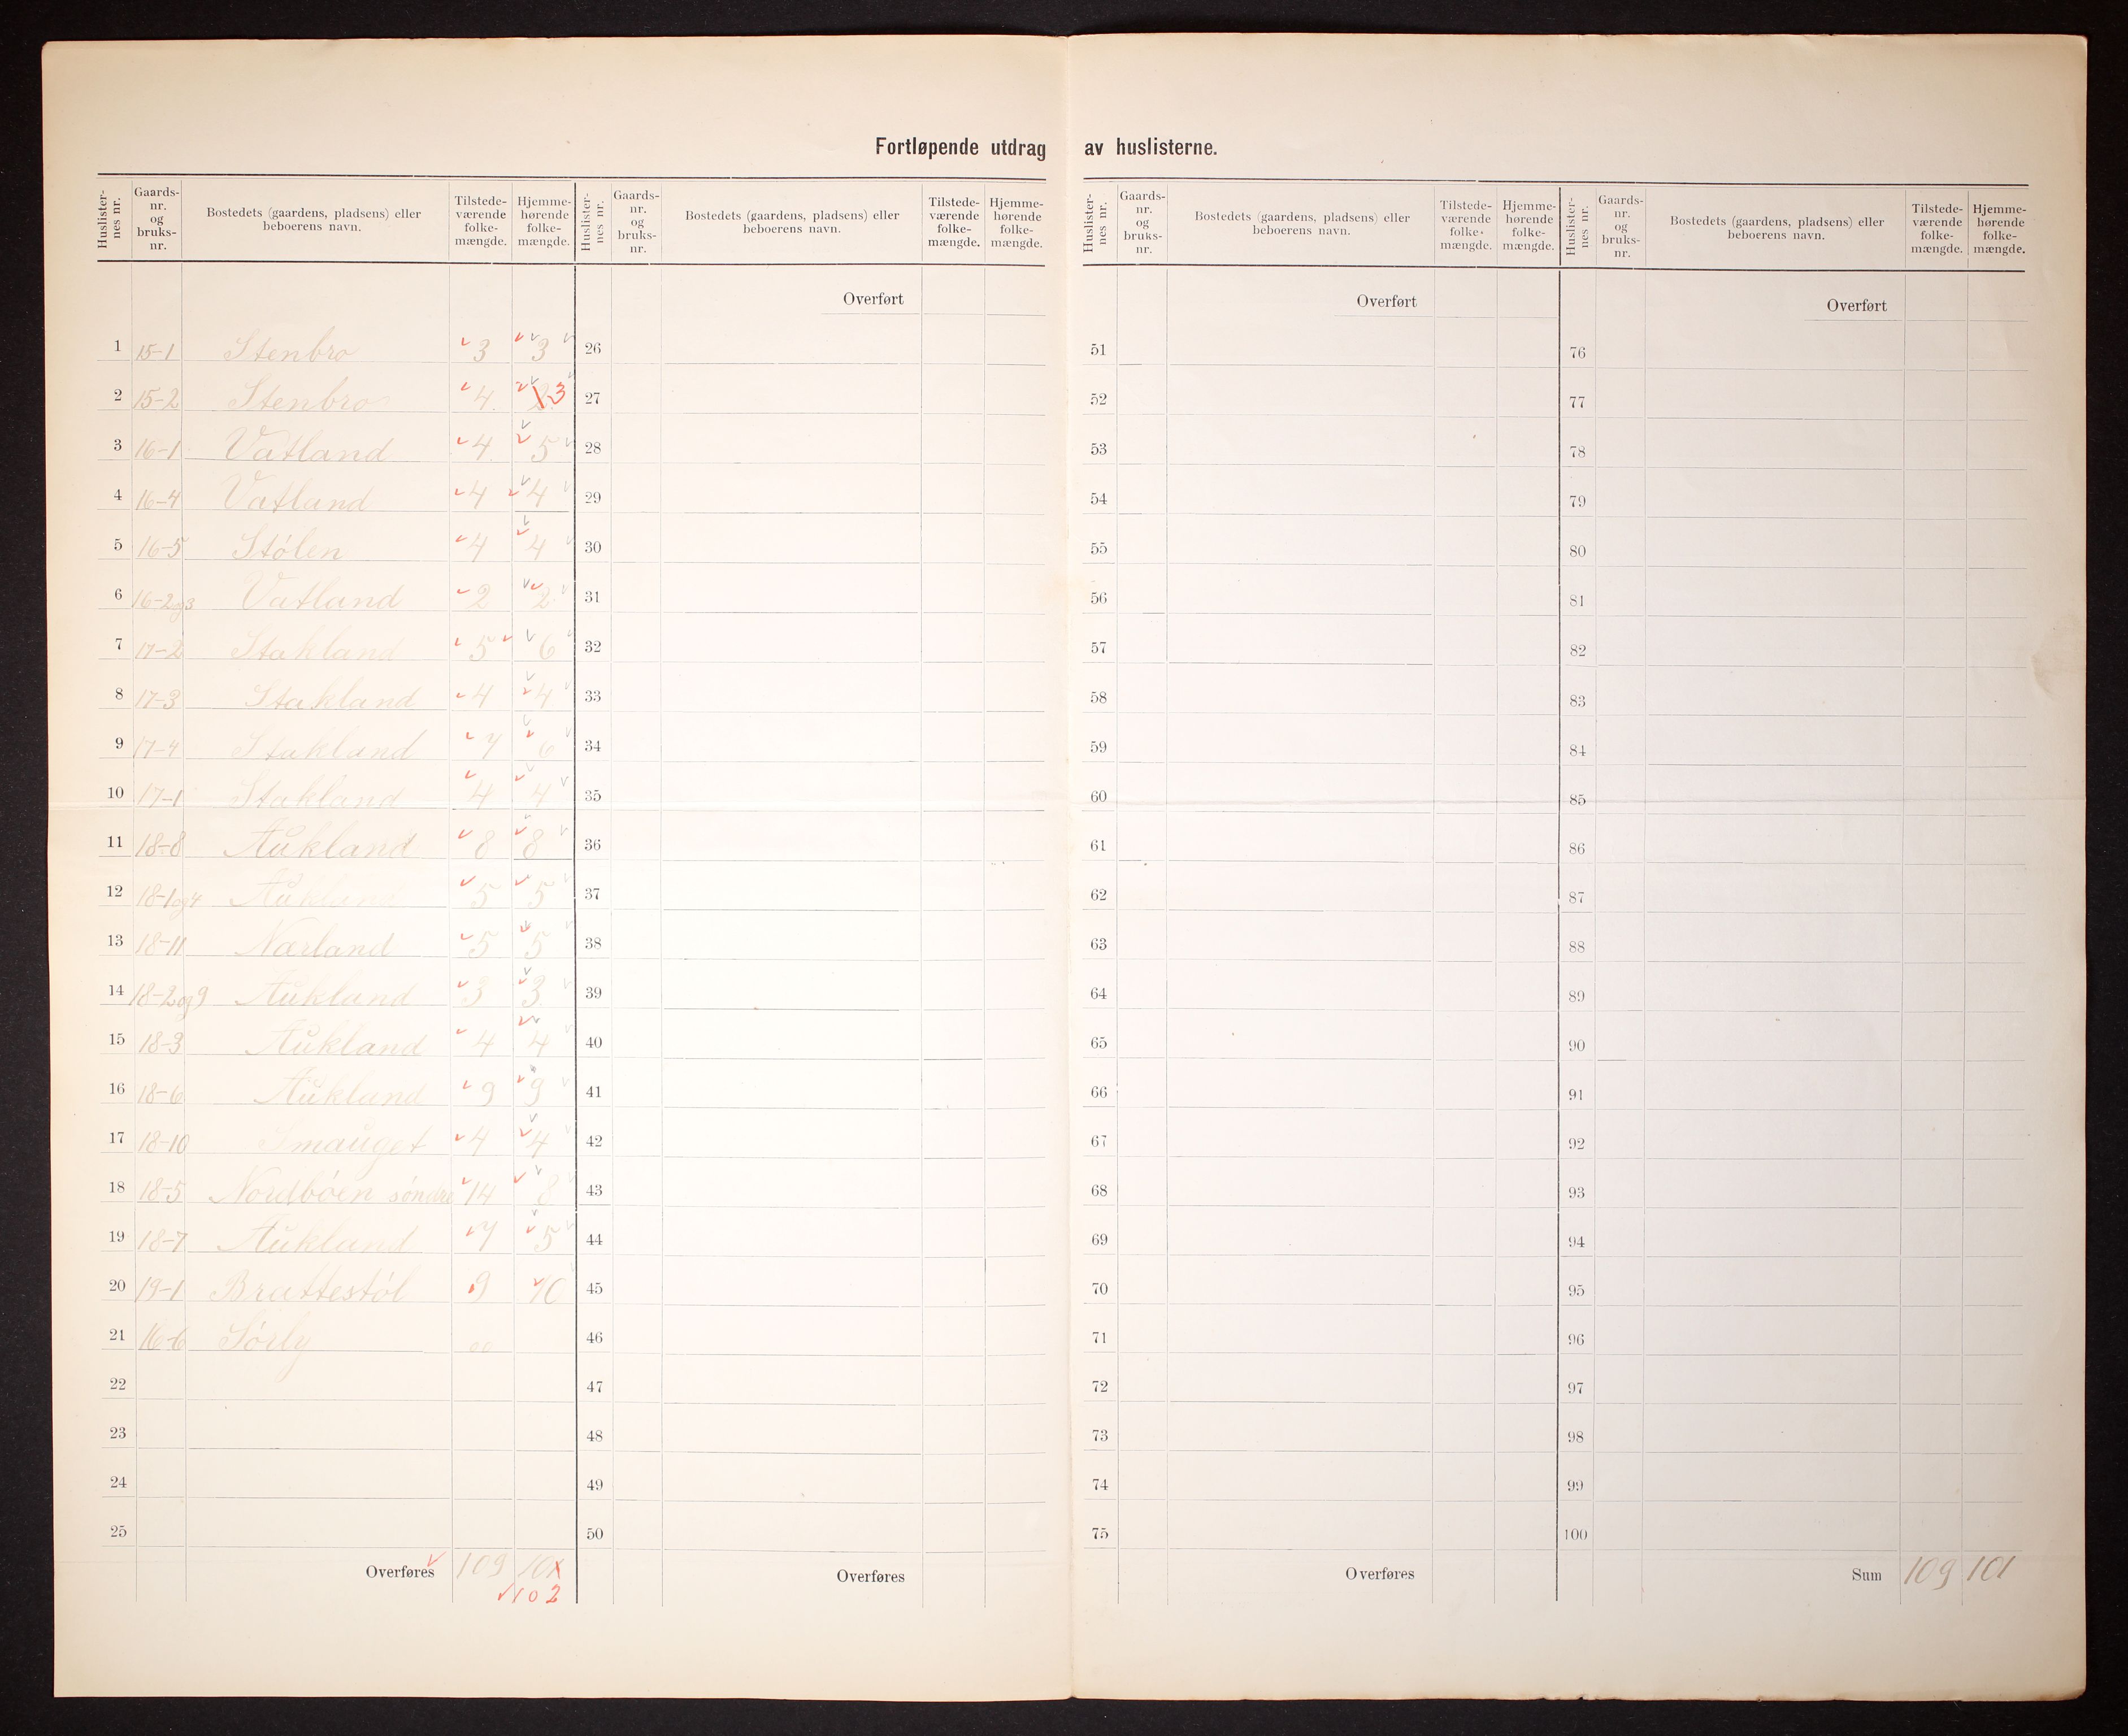 Fortløpende utdrag av huslisterne.
Huslister-nes nr. Gaards-nr. og bruks-nr. Bostedets (gaardens, pladsens) eller beboerens navn. Tilstede-værende folke-mængde. Hjemme-hørende folke-mængde.
1 15-1 Stenbro 3 3
2 15-2 Stenbro 4 2 3
3 16-1 Vatland 4 5
4 16-4 Vatland 4 4
5 16-5 Stólen 4 4
6 16-2og3 Vatland 2 2
7 17-2 Stakland 5 6
8 17-3 Stakland 4 4
9 17-4 Stakland 7 6
10 17-1 Stakland 4 4
11 18-8 Aukland 8 8
12 18-1og4 Aukland 5 5
13 18-11 Nærland 5 5
14 18-2og9 Aukland 3 3
15 18-3 Aukland 4 4
16 18-6 Aukland 9 9
17 18-10 Smauget 4 4
18 18-5 Nordbóen søndre 14 8
19 18-7 Aukland 7 5
20 19-1 Brattestól 9 10
21 16-6 Sórly 00
22
23
24
25
Overføres 109 101
102
Huslister-nes nr. Gaards-nr. og bruks-nr. Bostedets (gaardens, pladsens) eller beboerens navn. Tilstede-værende folke-mængde. Hjemme-hørende folke-mængde.
Overført
26
27
28
29
30
31
32
33
34
35
36
37
38
39
40
41
42
43
44
45
46
47
48
49
50
Overføres
Huslister-nes nr. Gaards-nr. og bruks-nr. Bostedets (gaardens, pladsens) eller beboerens navn. Tilstede-værende folke-mængde. Hjemme-hørende folke-mængde.
Overført
51
52
53
54
55
56
57
58
59
60
61
62
63
64
65
66
67
68
69
70
71
72
73
74
75
Overføres
Huslister-nes nr. Gaards-nr. og bruks-nr. Bostedets (gaardens, pladsens) eller beboerens navn. Tilstede-værende folke-mængde. Hjemme-hørende folke-mængde.
Overført
76
77
78
79
80
81
82
83
84
85
86
87
88
89
90
91
92
93
94
95
96
97
98
99
100
Sum 109 101